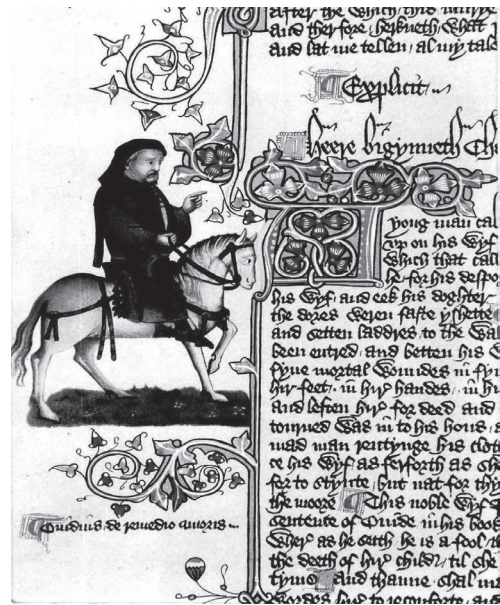 after the which this murye
and therfore herkneth what I
and lat me tellen al my tale
Explicit
Heere bigynneth Ch
A yong man cal
vp on his Wyf
Which that call
he for his despo
his Wyf and eek his doghter
the dores weren faste yshette
and setten laddres to the Wa
been entred and betten his W
fyue mortal Woundes in fyu
hir feet in hir handes in hi
and leften hir for deed and
tourned Was in to his hous a
mad man rentynge his cloth
ce his Wyf as ferforth as sh
for to stynte but nat for thy
the moore This noble Wyf P
sentence of Ouide in his book
Wher as he seith he is a fool th
the deeth of hir child til she
tyme And thanne shal m
Wordes hir to reconforte and
Ouidius de remedio amoris